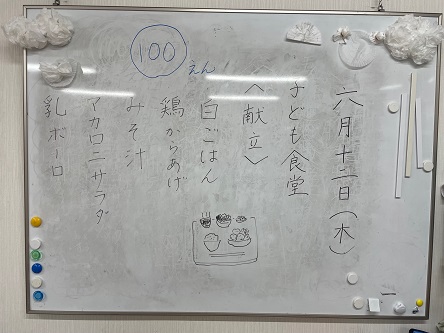 六月十二日(木)
子ども食堂
〈献立〉
白ごはん
鶏からあげ
みそ汁
マカロニサラダ
乳ボーロ
100えん